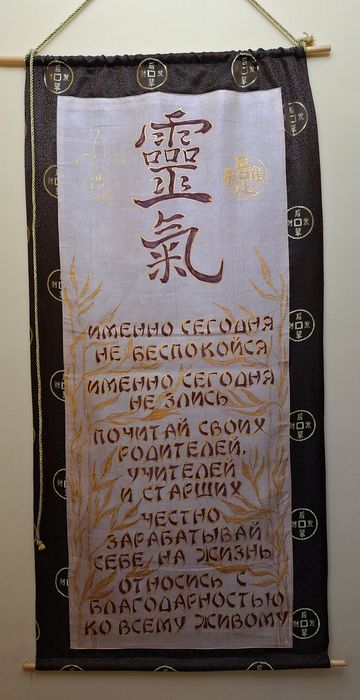 靈
氣
ИМЕННО СЕГОДНЯ
НЕ БЕСПОКОЙСЯ
ИМЕННО СЕГОДНЯ
НЕ ЗЛИСЬ
ПОЧИТАЙ СВОИХ
РОДИТЕЛЕЙ,
УЧИТЕЛЕЙ
И СТАРШИХ
ЧЕСТНО
ЗАРАБАТЫВАЙ
СЕБЕ НА ЖИЗНЬ
ОТНОСИСЬ С
БЛАГОДАРНОСТЬЮ
КО ВСЕМУ ЖИВОМУ